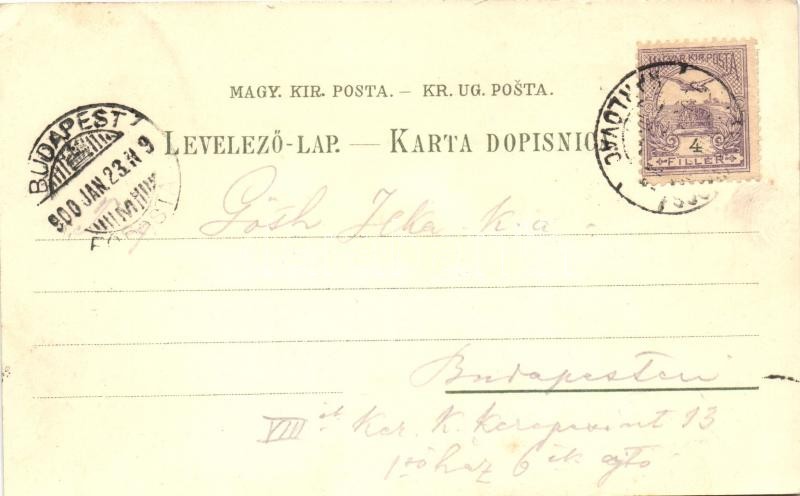 MAGY. KIR. POSTA. — KR. UG. POŠTA.
LEVELEZŐ-LAP. — KARTA DOPISNIC
MAGYAR KIR. POSTA
4
FILLER
KARLOVAC
BUDAPEST
900 JAN. 23. N 9
Jlka k. a.
Budapesten
VIII ik Ker. K. Kerepesi út 13
ház 6 ik ajtó